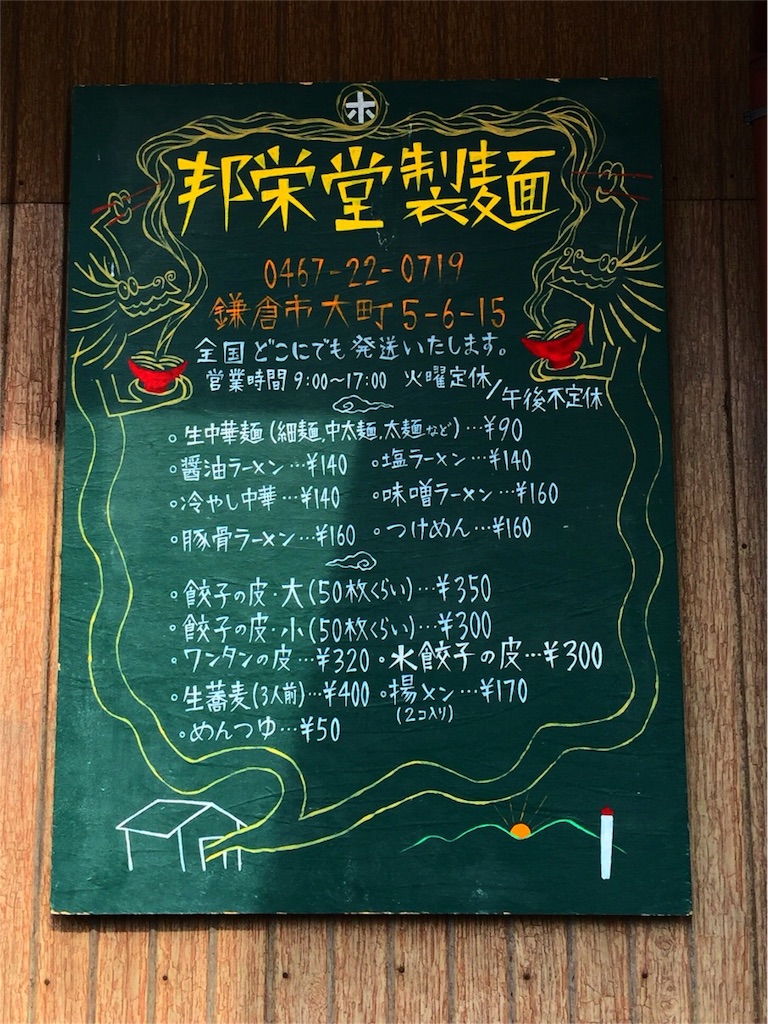 ホ
邦栄堂製麺
0467-22-0719
鎌倉市大町5-6-15
全国どこにでも発送いたします。
営業時間9:00〜17:00 火曜定休/午後不定休
◦生中華麺(細麺,中太麺,太麺など)…¥90
◦醤油ラーメン…¥140 ◦塩ラーメン…¥140
◦冷やし中華…¥140 ◦味噌ラーメン…¥160
◦豚骨ラーメン…¥160 ◦つけめん…¥160
◦餃子の皮・大(50枚くらい)…¥350
◦餃子の皮・小(50枚くらい)…¥300
◦ワンタンの皮…¥320 ◦水餃子の皮…¥300
◦生蕎麦(3人前)…¥400 ◦揚メン…¥170
(2コ入り)
◦めんつゆ…¥50